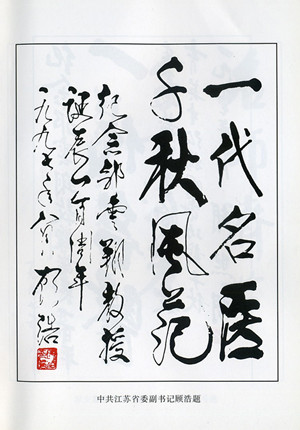 一代名医
千秋风范
纪念邹云翔教授
诞辰一百周年
一九九七年八月 顾浩
中共江苏省委副书记顾浩题